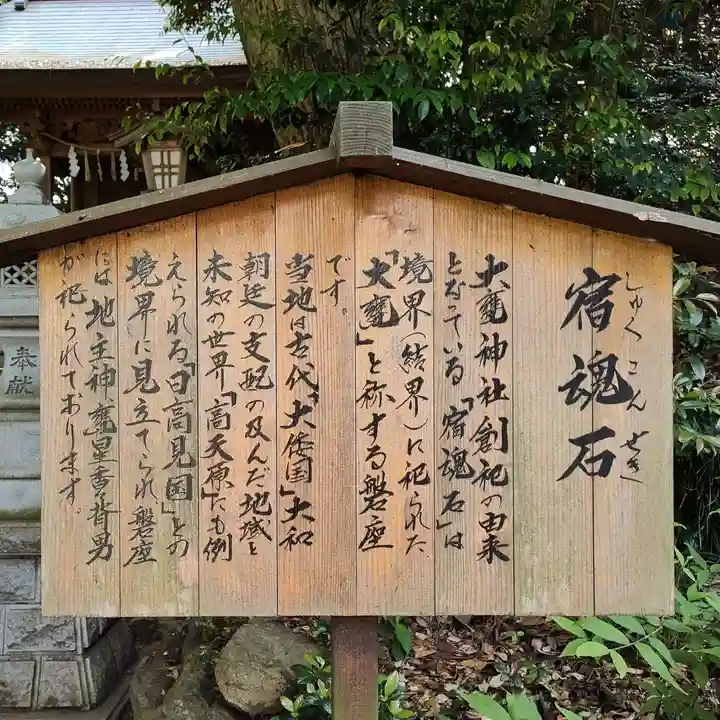 宿魂石
しゅくこんせき
大甕神社創祀の由来
となっている「宿魂石」は
境界(結界)に祀られた
「大甕」と称する磐座
です。
当地は古代「大倭国」大和
朝廷の支配の及んだ地域と
未知の世界「高天原」にも例
えられる「日高見国」との
境界に見立てられ磐座
には地主神甕星香々背男
が祀られております。
奉献